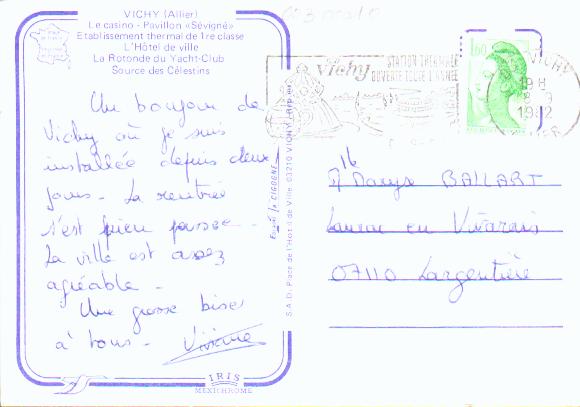 VICHY (Allier)
Le casino - Pavillon «Sévigné»
Etablissement thermal de 1re classe
L'Hôtel de ville
La Rotonde du Yacht-Club
Source des Célestins
Un bonjour de
Vichy où je suis
installée depuis deux
jours - La rentrée
s'est bien passée -
La ville est assez
agréable -
Une grosse bise
à tous - Viviane
IRIS
MEXICHROME
Editions la CIGOGNE
S.A.D. Place de l'Hôtel de Ville 03210 VICHY
Vichy
STATION THERMALE
OUVERTE TOUTE L'ANNEE
1,60
VICHY
19 H
9
1982
ALLIER
BALLART
Laurac en Vivarais
07110 Largentière